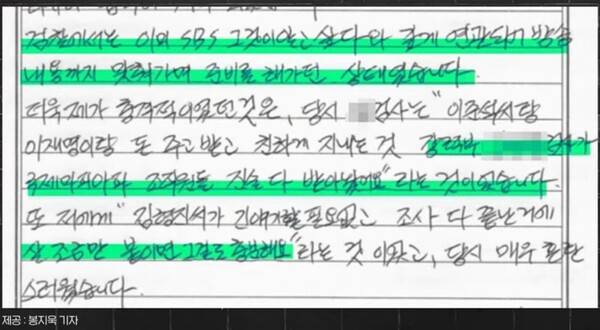 검찰에서는 이미 SBS 그것이 알고싶다와 깊게 연관되어 방송
내용까지 맞춰가며 준비를 해가던 상태였습니다.
더욱 제가 충격적이였던 것은, 당시 검사는 "이준석서랑
이재명이랑 돈 주고 받고 친하게 지내는 것 강력부 검사가
국제마피아파 조직원들 진술 다 받아놨어요" 라는 것이였습니다.
또 저에게 " 김형지서가 긴얘기할 필요없고 조사 다 끝난거에
살 조금만 붙이면 그걸로 충분해요" 라는 것 이였고, 당시 매우 혼란
스러웠습니다.
제공 : 봉지욱 기자